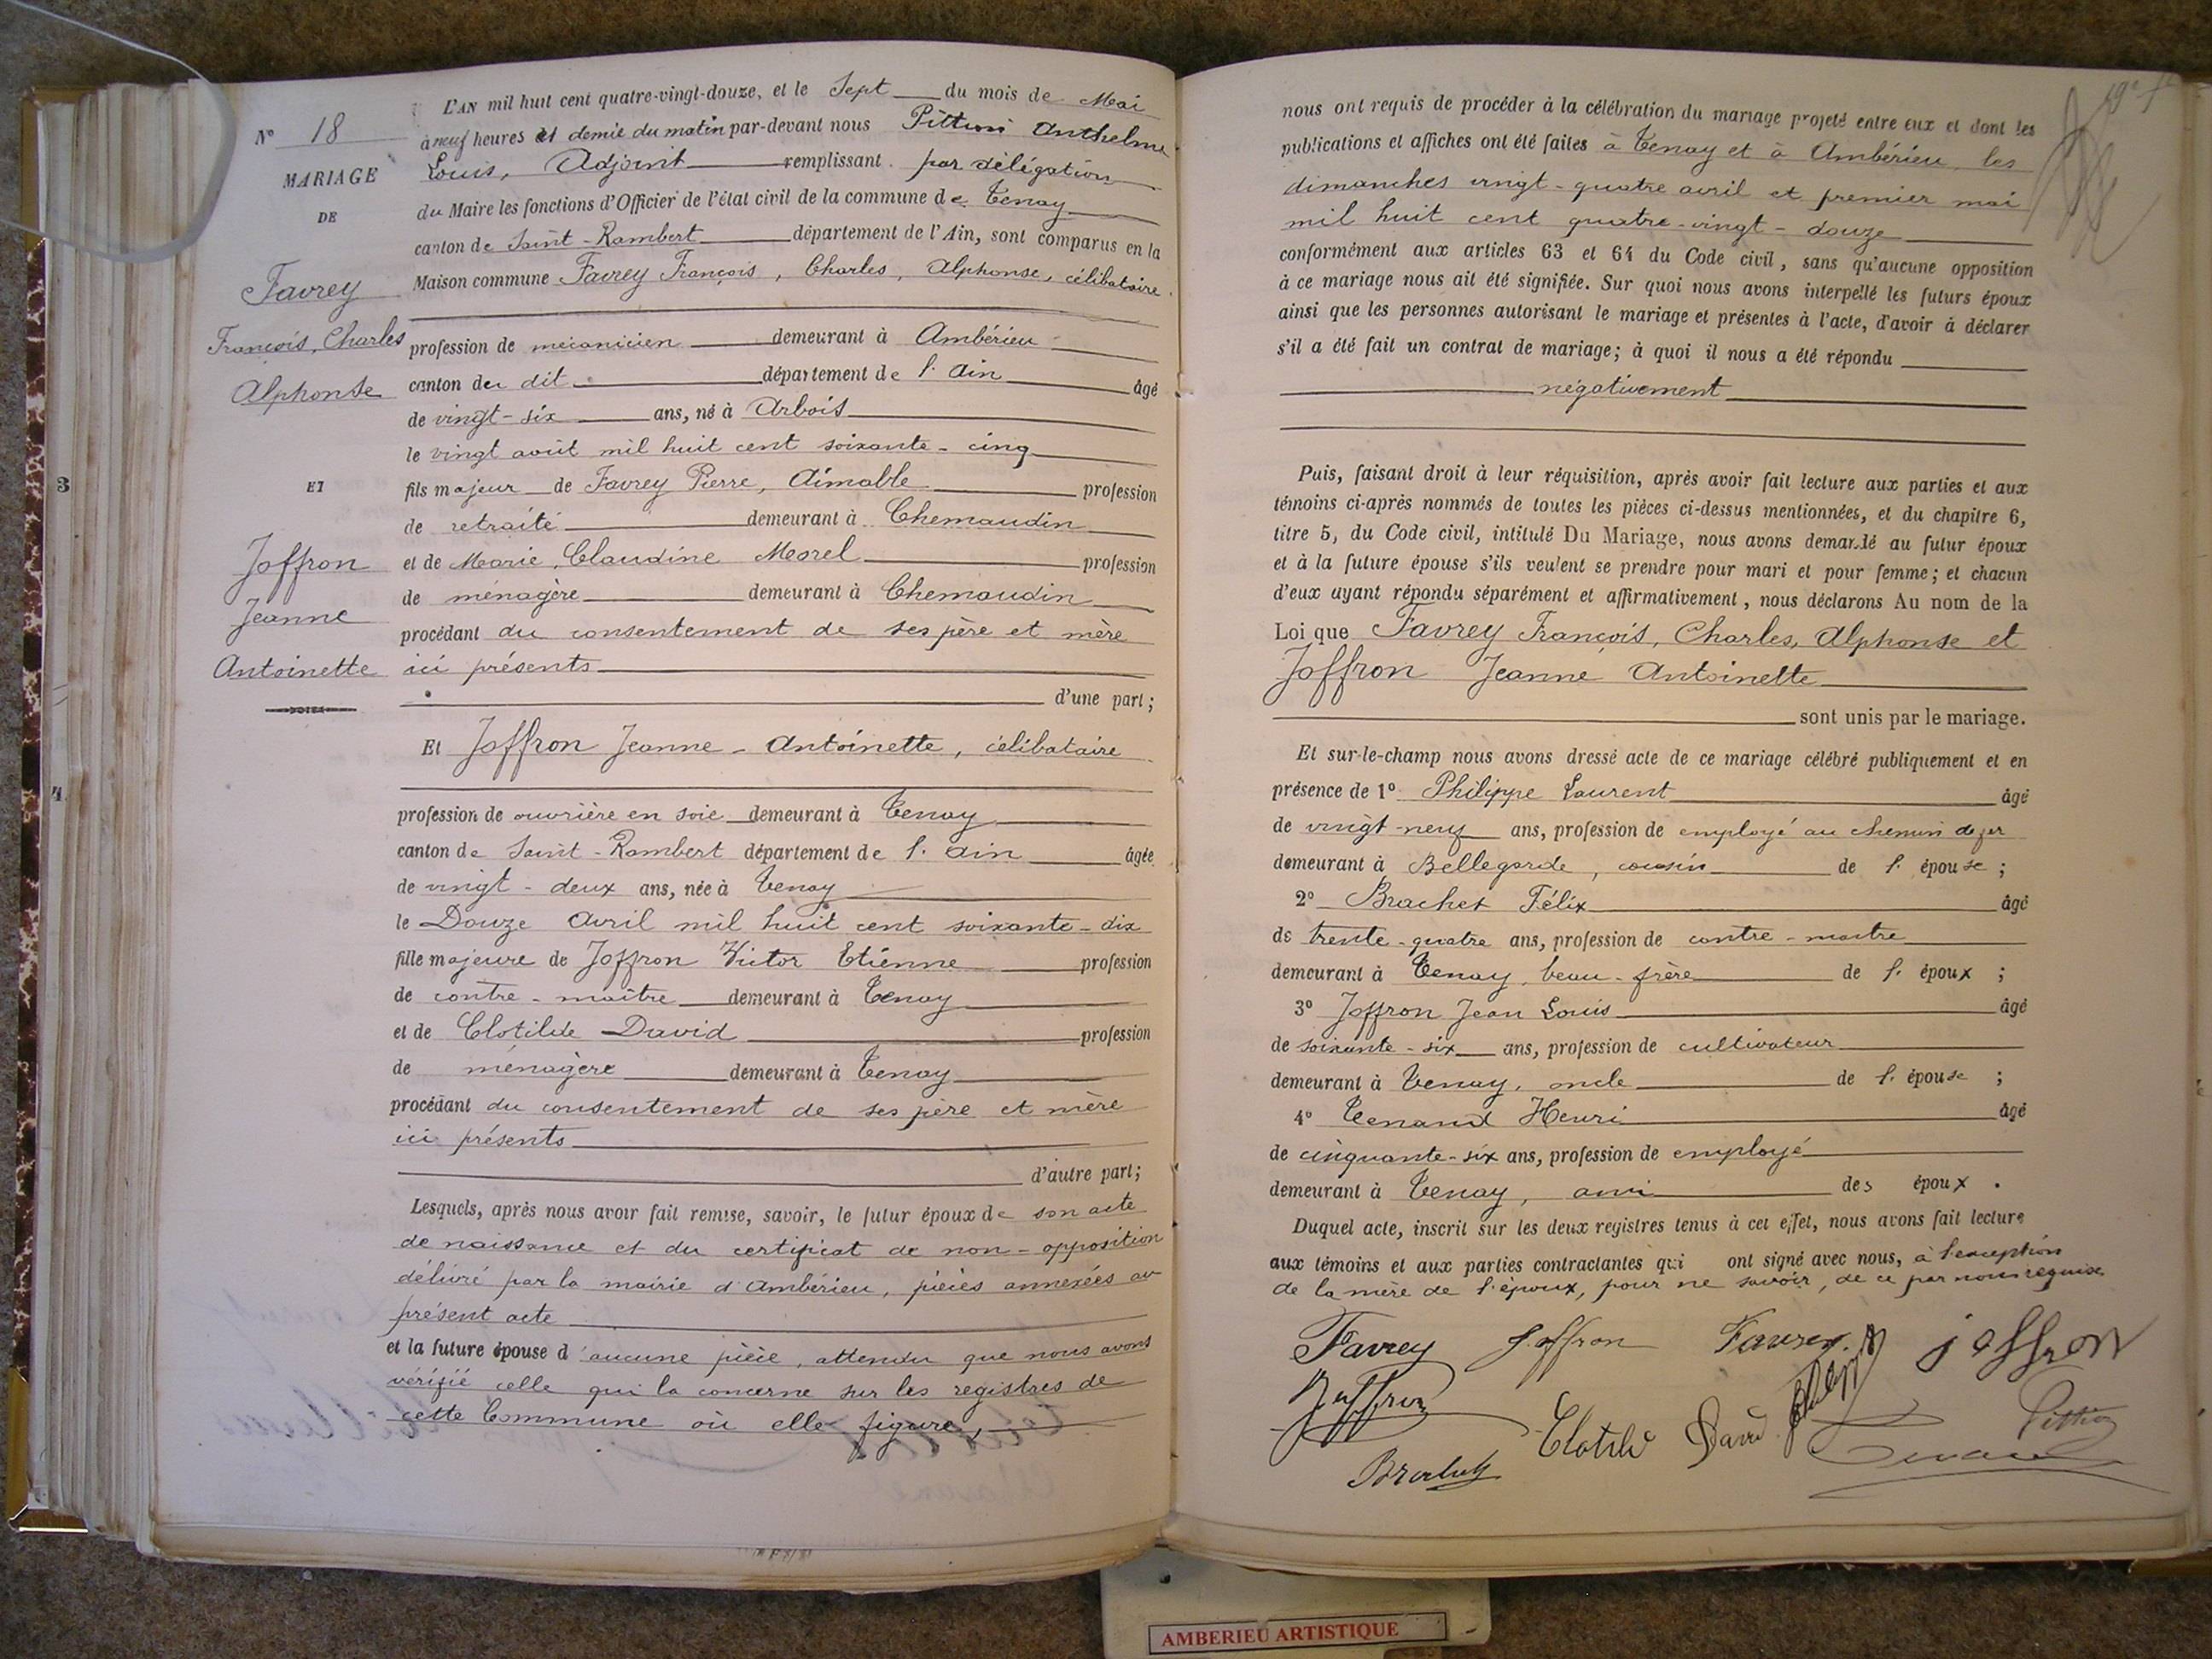 N° 18
MARIAGE
DE
Favrey
François, Charles
Alphonse
ET
Joffron
Jeanne
Antoinette
L'AN mil huit cent quatre-vingt-douze, et le Sept du mois de Mai
à neuf heures et demie du matin par-devant nous Pittion Anthelme
Louis, Adjoint remplissant par délégation
du Maire les fonctions d'Officier de l'état civil de la commune de Tenay
canton de Saint-Rambert département de l'Ain, sont comparus en la
Maison commune Favrey François, Charles, Alphonse, célibataire.
profession de mécanicien demeurant à Ambérieu
canton du dit département de l'Ain âgé
de vingt-six ans, né à Arbois
le vingt août mil huit cent soixante-cinq
fils majeur de Favrey Pierre, Aimable profession
de retraité demeurant à Chemaudin
et de Marie, Claudine Morel profession
de ménagère demeurant à Chemaudin
procédant du consentement de ses père et mère
ici présents
d'une part;
Et Joffron Jeanne-Antoinette, célibataire
profession de ouvrière en soie demeurant à Tenay
canton de Saint-Rambert département de l'Ain âgée
de vingt-deux ans, née à Tenay
le Douze Avril mil huit cent soixante-dix
fille majeure de Joffron Victor Etienne profession
de contre-maître demeurant à Tenay
et de Clotilde David profession
de ménagère demeurant à Tenay
procédant du consentement de ses père et mère
ici présents
d'autre part;
Lesquels, après nous avoir fait remise, savoir, le futur époux de son acte
de naissance et du certificat de non-opposition
délivré par la mairie d'Ambérieu, pièces annexées au
présent acte
et la future épouse d'aucune pièce, attendu que nous avons
vérifié celle qui la concerne sur les registres de
cette Commune où elle figure,
nous ont requis de procéder à la célébration du mariage projeté entre eux et dont les
publications et affiches ont été faites à Tenay et à Ambérieu les
dimanches vingt-quatre avril et premier mai
mil huit cent quatre-vingt-douze
conformément aux articles 63 et 64 du Code civil, sans qu'aucune opposition
à ce mariage nous ait été signifiée. Sur quoi nous avons interpellé les futurs époux
ainsi que les personnes autorisant le mariage et présentes à l'acte, d'avoir à déclarer
s'il a été fait un contrat de mariage; à quoi il nous a été répondu
négativement
Puis, faisant droit à leur réquisition, après avoir fait lecture aux parties et aux
témoins ci-après nommés de toutes les pièces ci-dessus mentionnées, et du chapitre 6,
titre 5, du Code civil, intitulé Du Mariage, nous avons demandé au futur époux
et à la future épouse s'ils veulent se prendre pour mari et pour femme; et chacun
d'eux ayant répondu séparément et affirmativement, nous déclarons Au nom de la
Loi que Favrey François, Charles, Alphonse et
Joffron Jeanne Antoinette
sont unis par le mariage.
Et sur-le-champ nous avons dressé acte de ce mariage célébré publiquement et en
présence de 1° Philippe Laurent âgé
de vingt-neuf ans, profession de employé au chemin de fer
demeurant à Bellegarde, cousin de l'épouse;
2° Brachet Félix âgé
de trente-quatre ans, profession de contre-maître
demeurant à Tenay, beau-frère de l'époux;
3° Joffron Jean Louis âgé
de soixante-six ans, profession de cultivateur
demeurant à Tenay, oncle de l'épouse;
4° Tenand Henri âgé
de cinquante-six ans, profession de employé
demeurant à Tenay, ami des époux.
Duquel acte, inscrit sur les deux registres tenus à cet effet, nous avons fait lecture
aux témoins et aux parties contractantes qui ont signé avec nous, à l'exception
de la mère de l'époux, pour ne savoir, de ce par nous requise.
Favrey J. Joffron Favrey joffron
Joffron Clotilde David Pittion
Brachet
3
4
AMBERIEU ARTISTIQUE